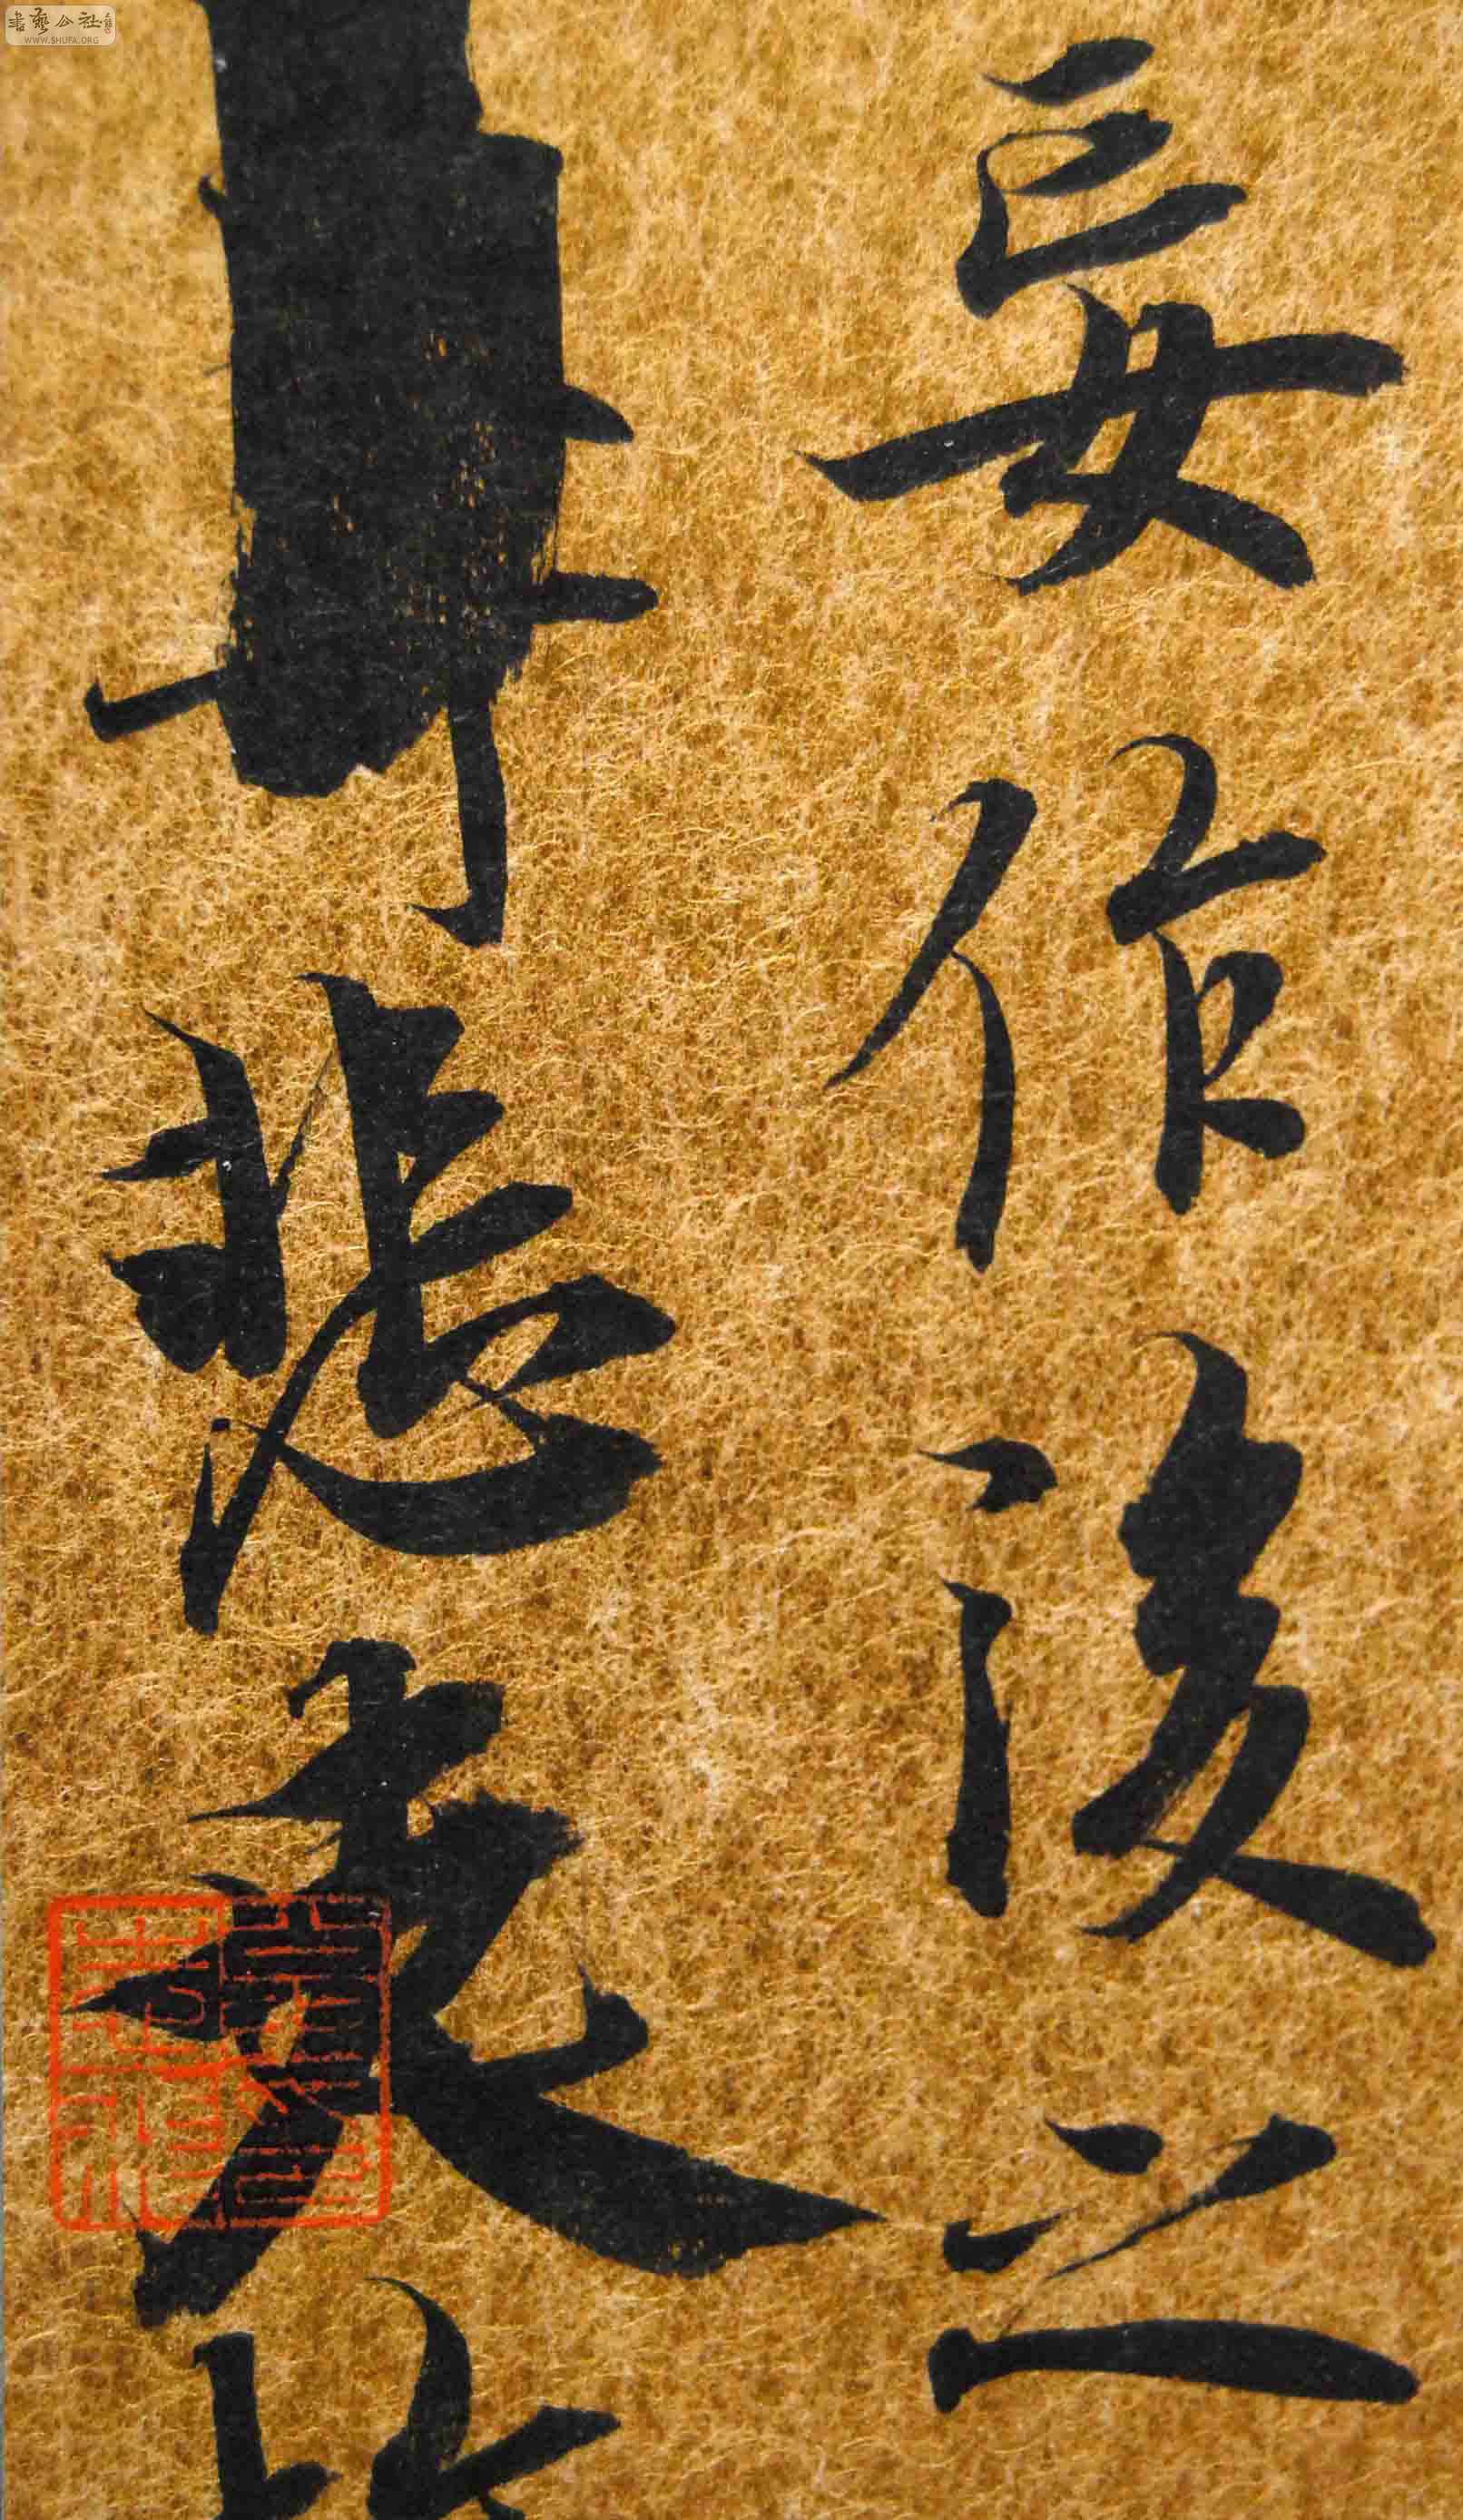 書藝公社
WWW.SHUFA.ORG
妄作後之
悲夫